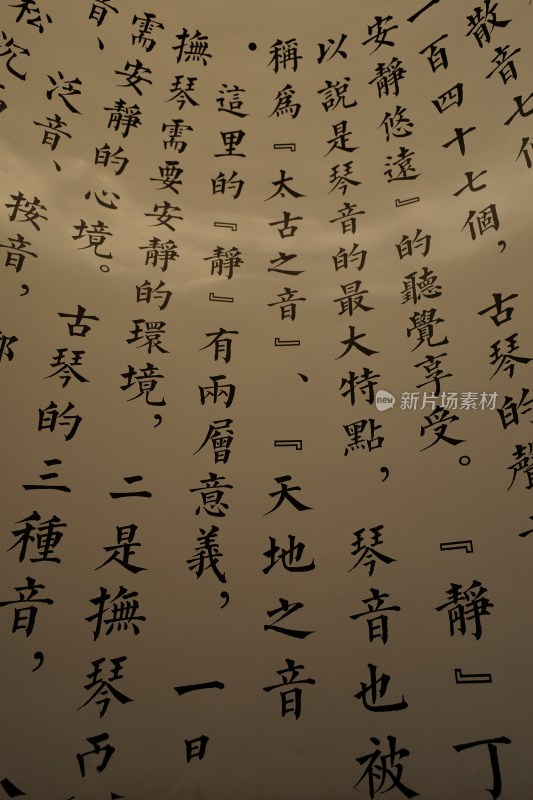 散音七個
一百四十七個，古琴的聲
安靜悠遠』的聽覺享受。『靜』
以說是琴音的最大特點，琴音也被
稱為『太古之音』、『天地之音
這里的『靜』有兩層意義，一
撫琴需要安靜的環境，二是撫琴
需安靜的心境。古琴的三種音，
音、泛音、按音，
松沉
new 新片場素材